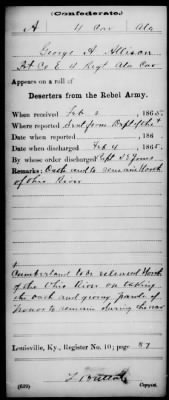 (Confederate.)
A 4 Cav Ala
George A. Allison
Pvt Co E 4 Regt Ala Cav
Appears on a roll of
Deserters from the Rebel Army.
When received Feb 2, 1865.
Where reported Sent from Dept of the
Date when reported , 186 .
Date when discharged Feb 4, 1865.
By whose order discharged Capt S E Jones
Remarks: Oath and to remain North
of Ohio River
Cumberland to be released North
of the Ohio River on taking
the oath and giving parole of
honor to remain during the war
Louisville, Ky., Register No. 10; page 87
(639) Copyist.